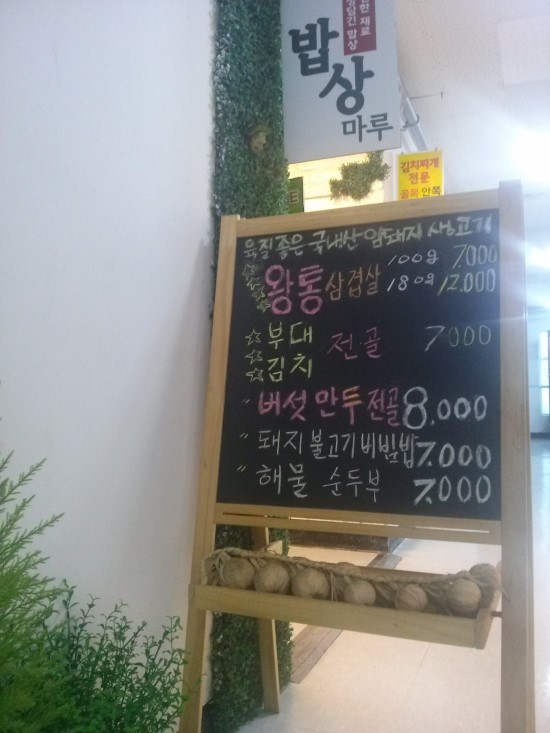 한 재료
정담긴 밥상
밥상
마루
김치찌개
전문
골목 안쪽
육질좋은 국내산 암돼지 생고기
왕통 삼겹살 100g 7.000
180g 12.000
☆ 부대
☆ 김치 전골 7000
" 버섯 만두전골 8,000
" 돼지 불고기비빔밥 7.000
" 해물 순두부 7.000